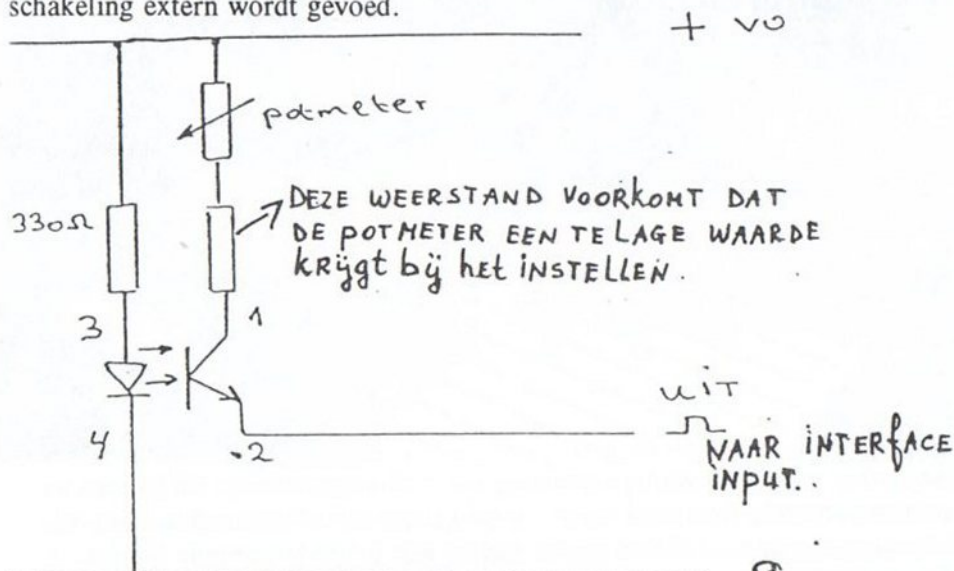 schakeling extern wordt gevoed.
+ vo
potmeter
330Ω
DEZE WEERSTAND VOORKOMT DAT
DE POTMETER EEN TE LAGE WAARDE
KRijgt bij het iNSTELLEN.
3
1
uiT
4
.2
NAAR iNTERfACE
iNPUT..